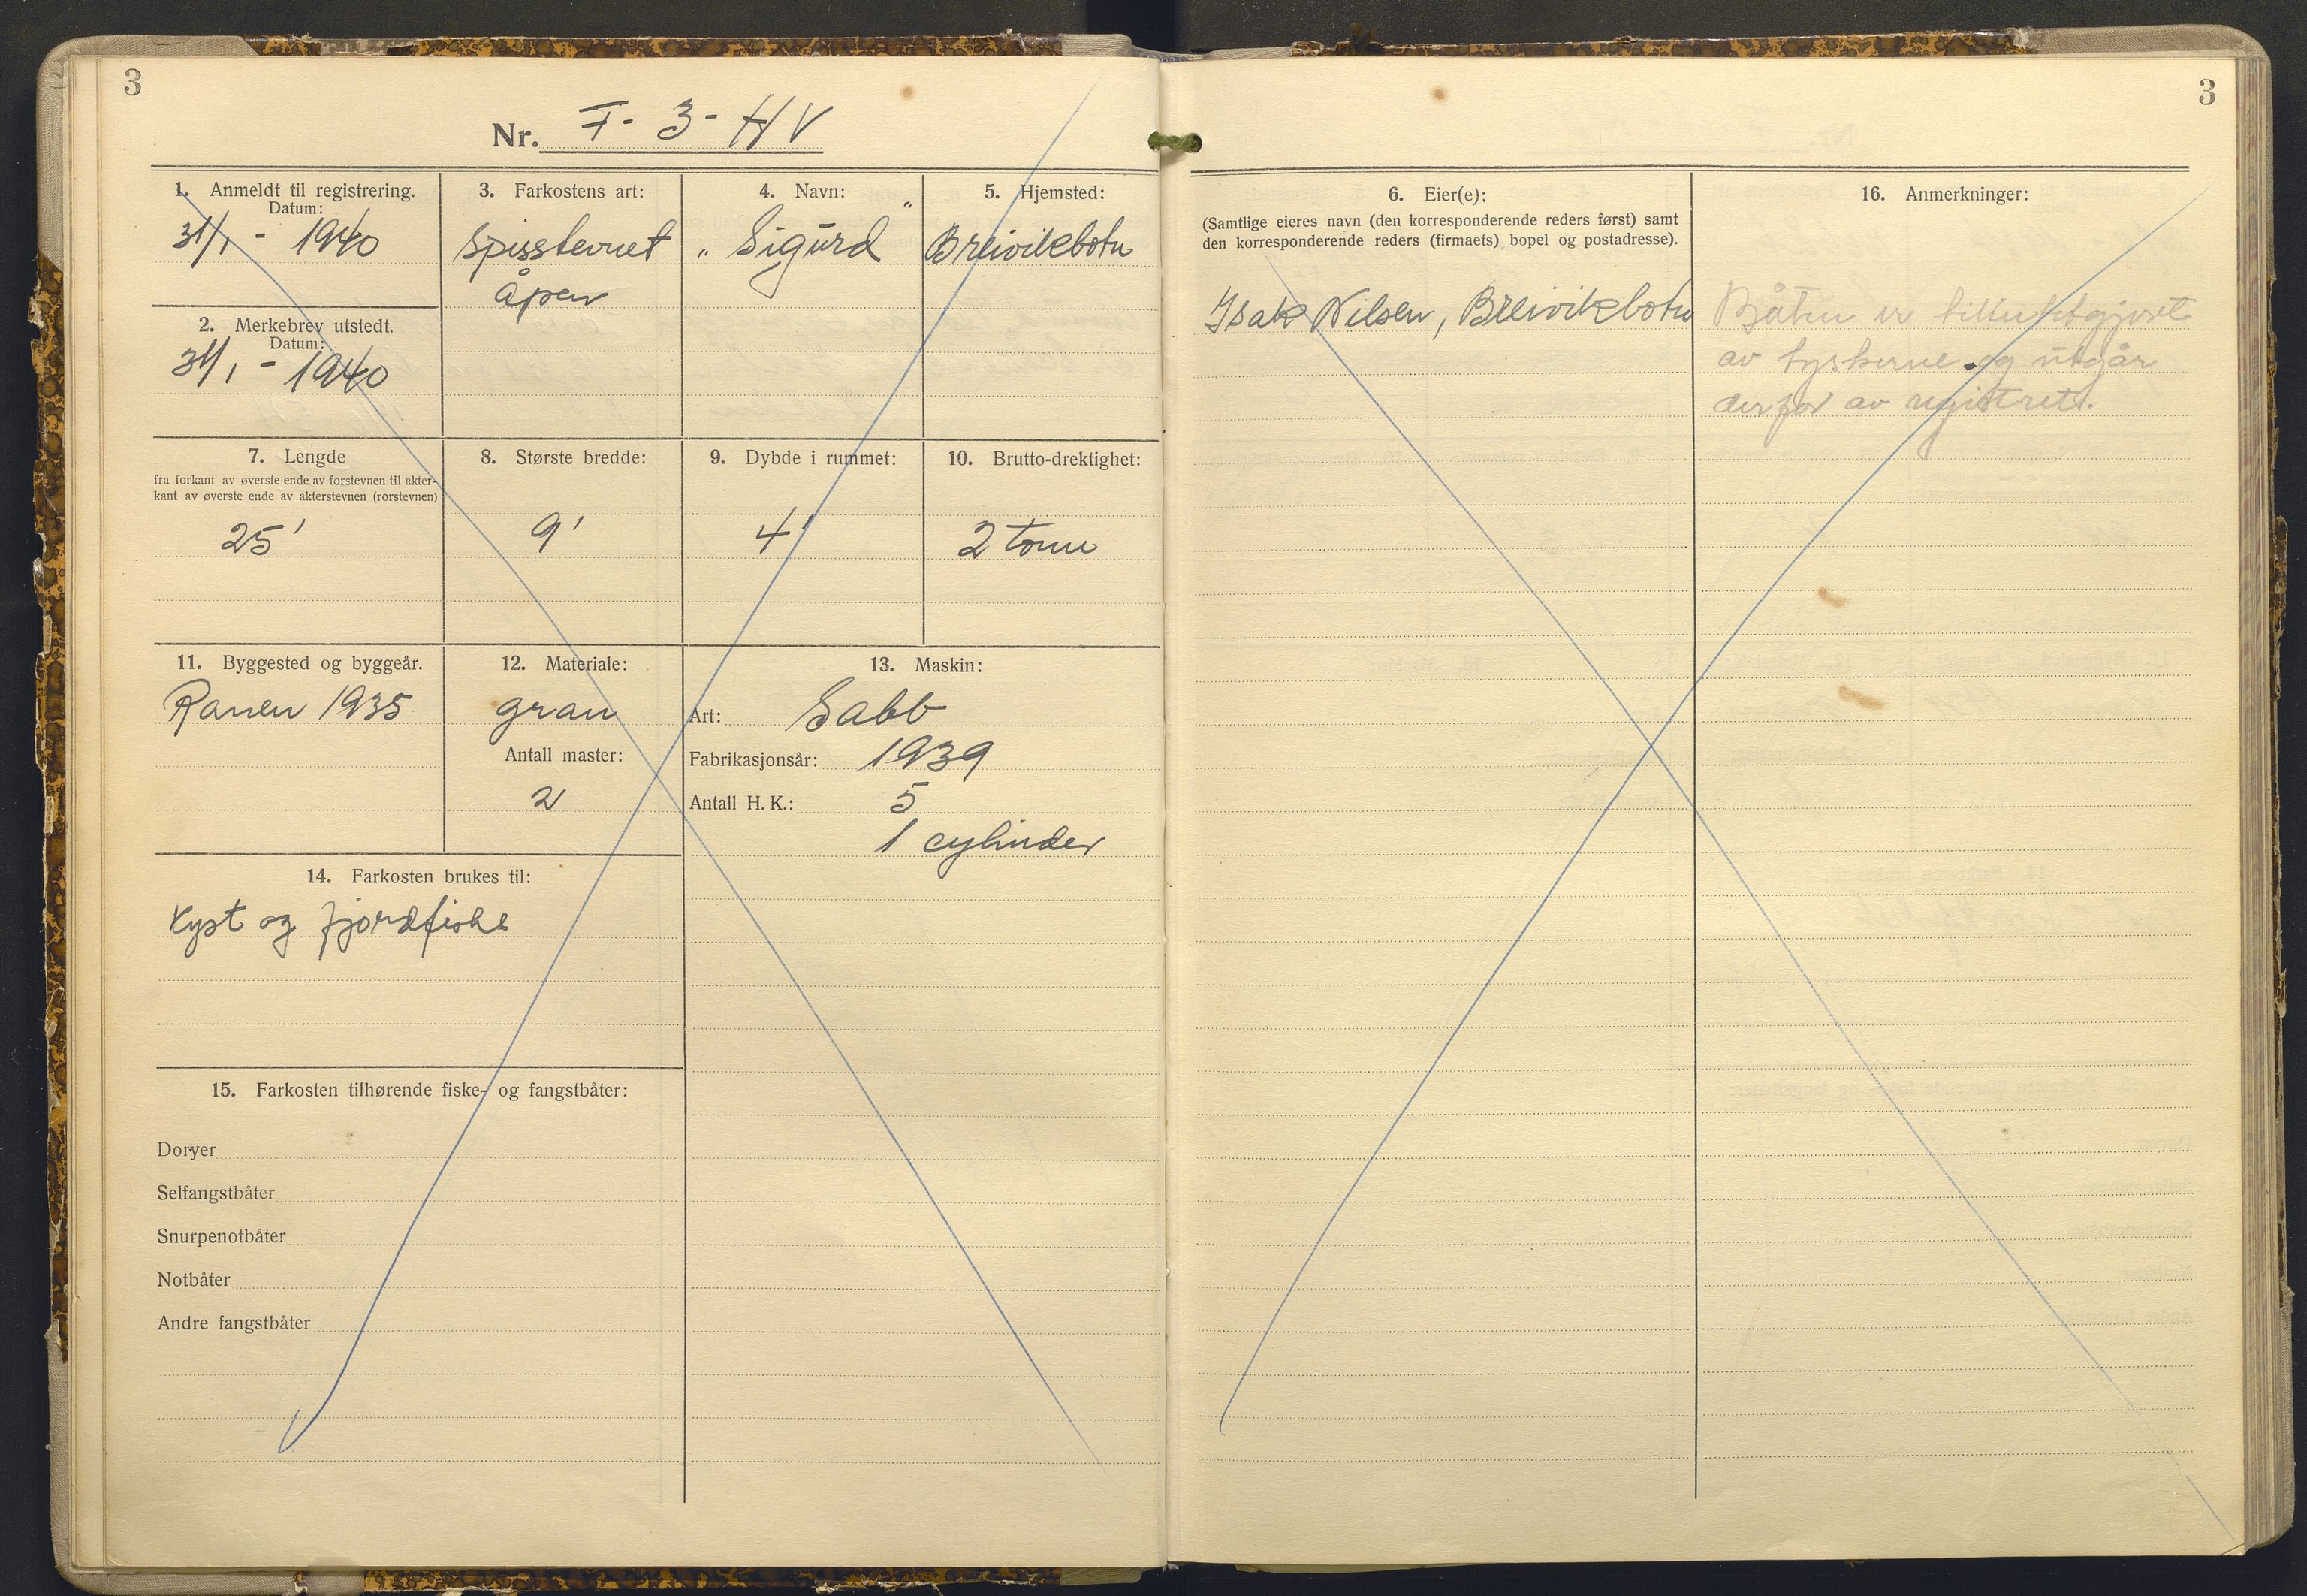 3
Nr. F - 3 - HV
1. Anmeldt til registrering.
Datum:
31/1 - 1940
2. Merkebrev utstedt.
Datum:
31/1 - 1940
3. Farkostens art:
Spisstevnet
åpen
4. Navn:
"Sigurd"
5. Hjemsted:
Breivikbotn
7. Lengde
fra forkant av øverste ende av forstevnen til akter-
kant av øverste ende av akterstevnen (rorstevnen)
25'
8. Største bredde:
9'
9. Dybde i rummet:
4'
10. Brutto-drektighet:
2 tonn
11. Byggested og byggeår.
Ranen 1935
12. Materiale:
gran
Antall master:
2
13. Maskin:
Art: Sabb
Fabrikasjonsår: 1939
Antall H. K.: 5
1 cylinder
14. Farkosten brukes til:
Kyst og fjordfiske
15. Farkosten tilhørende fiske- og fangstbåter:
Doryer
Selfangstbåter
Snurpenotbåter
Notbåter
Andre fangstbåter
3
6. Eier(e):
(Samtlige eieres navn (den korresponderende reders først) samt
den korresponderende reders (firmaets) bopel og postadresse).
Isak Nilsen, Breivikbotn
16. Anmerkninger:
Båten er tilintetgjort
av tyskerne og utgår
derfor av registret.